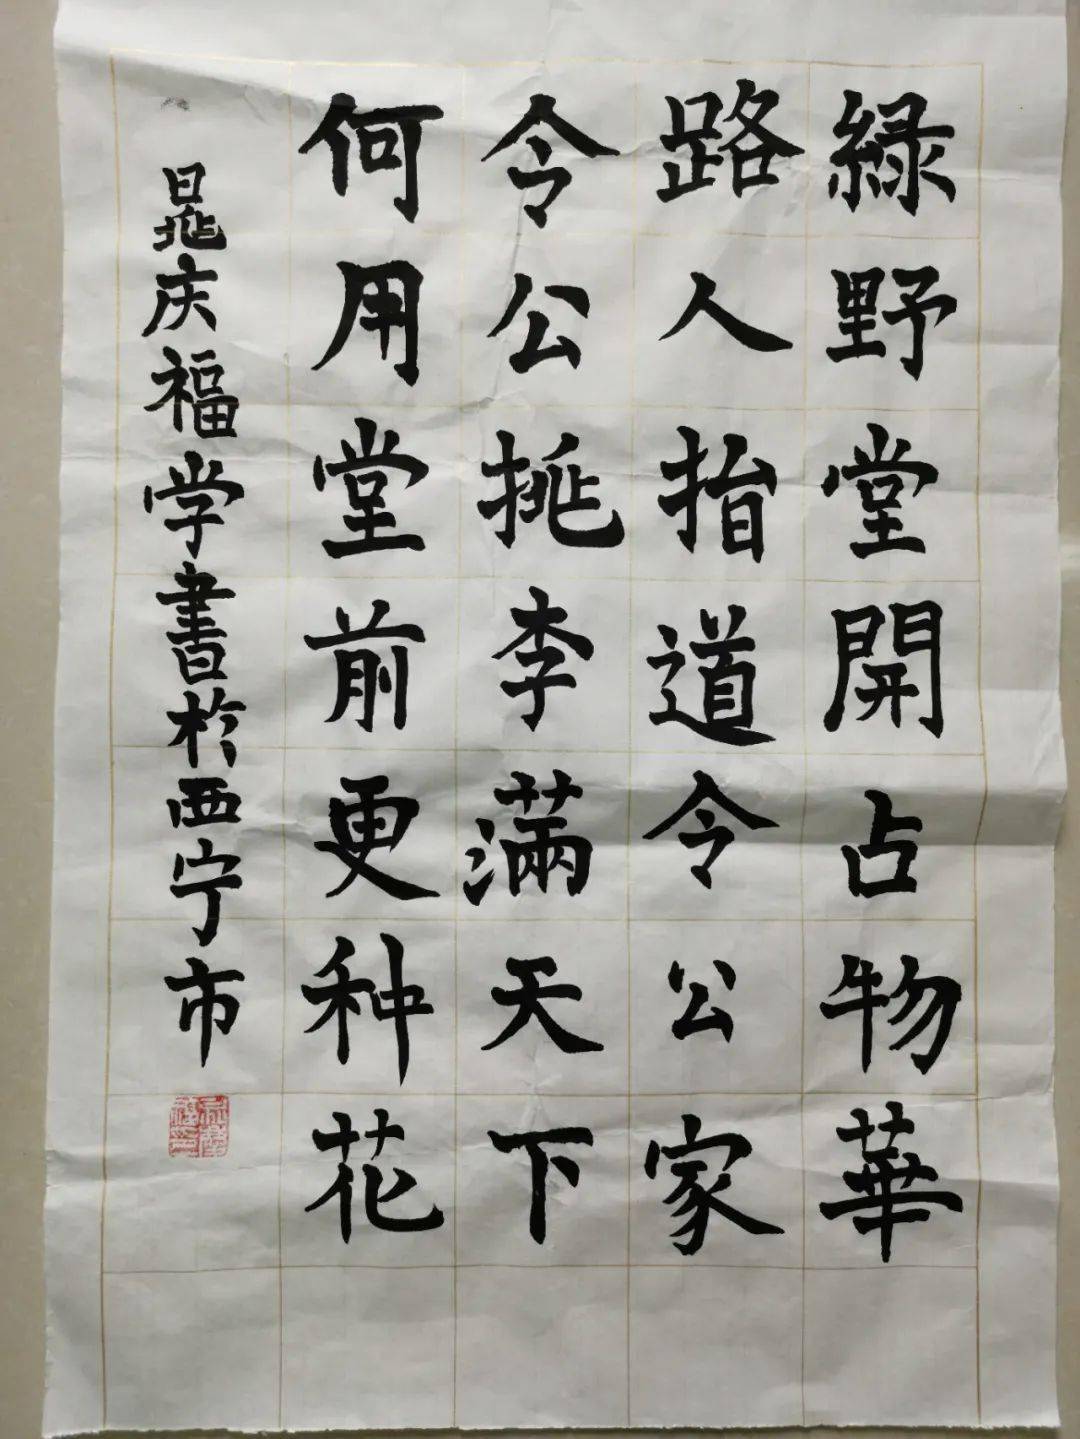 緑野堂開占物華
路人指道令公家
令公挑李滿天下
何用堂前更种花
晁庆福学書於西宁市